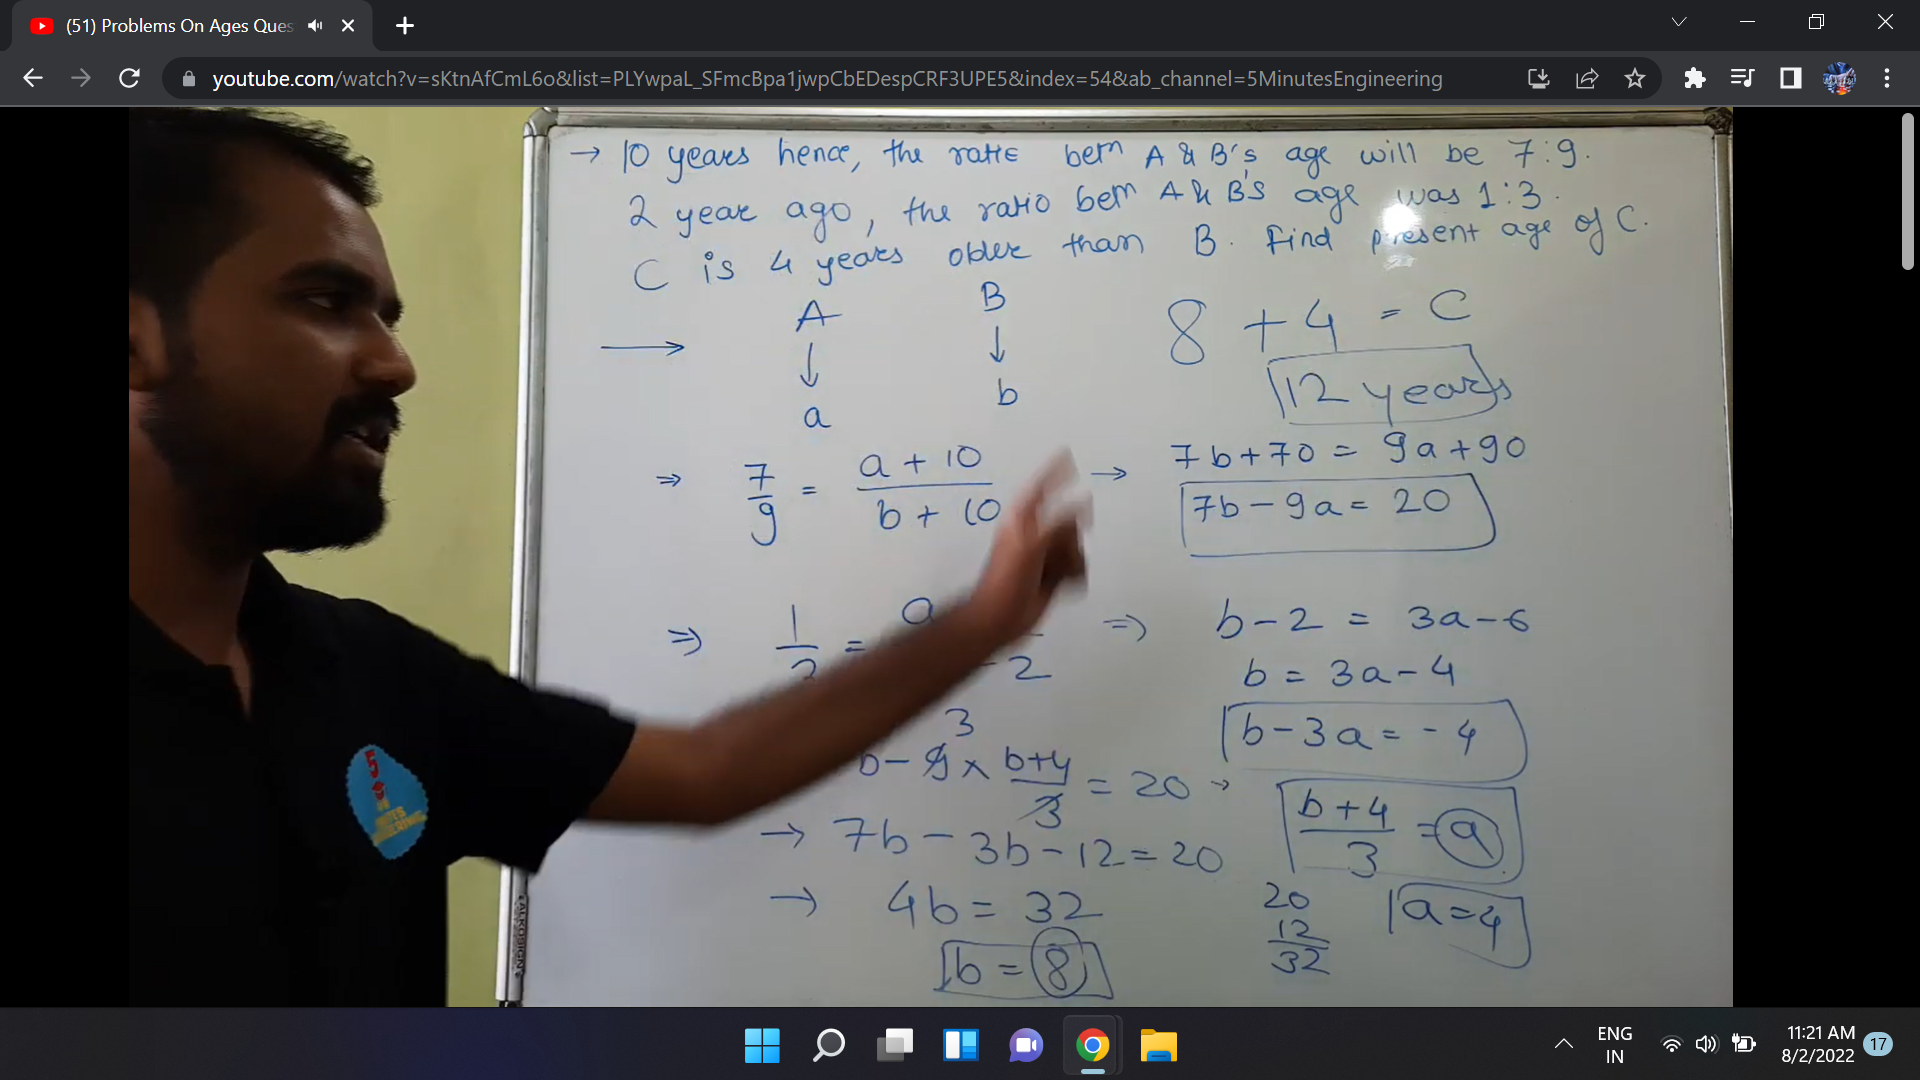 (51) Problems On Ages Ques
youtube.com/watch?v=sKtnAfCmL6o&list=PLYwpaL_SFmcBpa1jwpCbEDespCRF3UPE5&index=54&ab_channel=5MinutesEngineering
→ 10 years hence, the ratio betn A & B's age will be 7:9.
2 year ago, the ratio betn A & B's age was 1:3.
C is 4 years older than B. Find present age of C.
A B
8 + 4 = C
→ ↓ ↓
a b
12 years
⇒ 7/9 = a + 10 / b + 10 → 7b + 70 = 9a + 90
7b - 9a = 20
⇒ 1 = a ⇒ b - 2 = 3a - 6
- 2
b = 3a - 4
b - 3a = - 4
3
b - 9 × b+4 / 3 = 20 →
b + 4 / 3 = a
→ 7b - 3b - 12 = 20
→ 4b = 32
20
12
32
a = 4
b = 8
5
ENG
IN
11:21 AM
8/2/2022
17